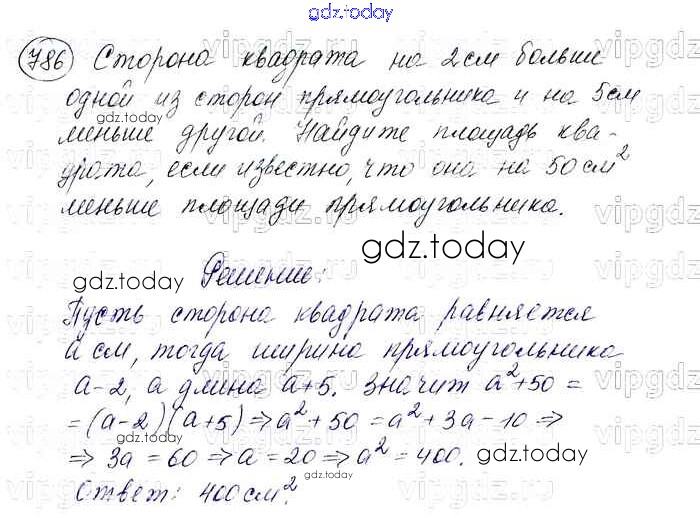 gdz.today
786 Сторона квадрата на 2 см больше
одной из сторон прямоугольника и на 5см
gdz.today
меньше другой. Найдите площадь ква-
драта, если известно, что она на 50 см²
меньше площади прямоугольника.
gdz.today
gdz.today
Решение:
Пусть сторона квадрата равняется
a см, тогда ширина прямоугольника
a-2, а длина a+5. Значит a²+50 =
gdz.today
= (a-2)(a+5) ⇒ a²+50 = a²+3a-10 ⇒
gdz.today
⇒ 3a = 60 ⇒ a = 20 ⇒ a² = 400.
gdz.today
gdz.today
Ответ: 400 см².